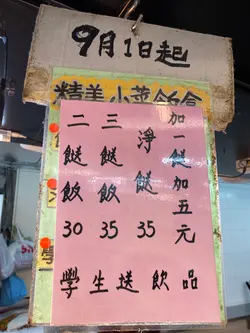 9月1日起
精美小菜飯盒
二餸飯30
三餸飯35
淨餸35
加一餸加五元
學生送飲品